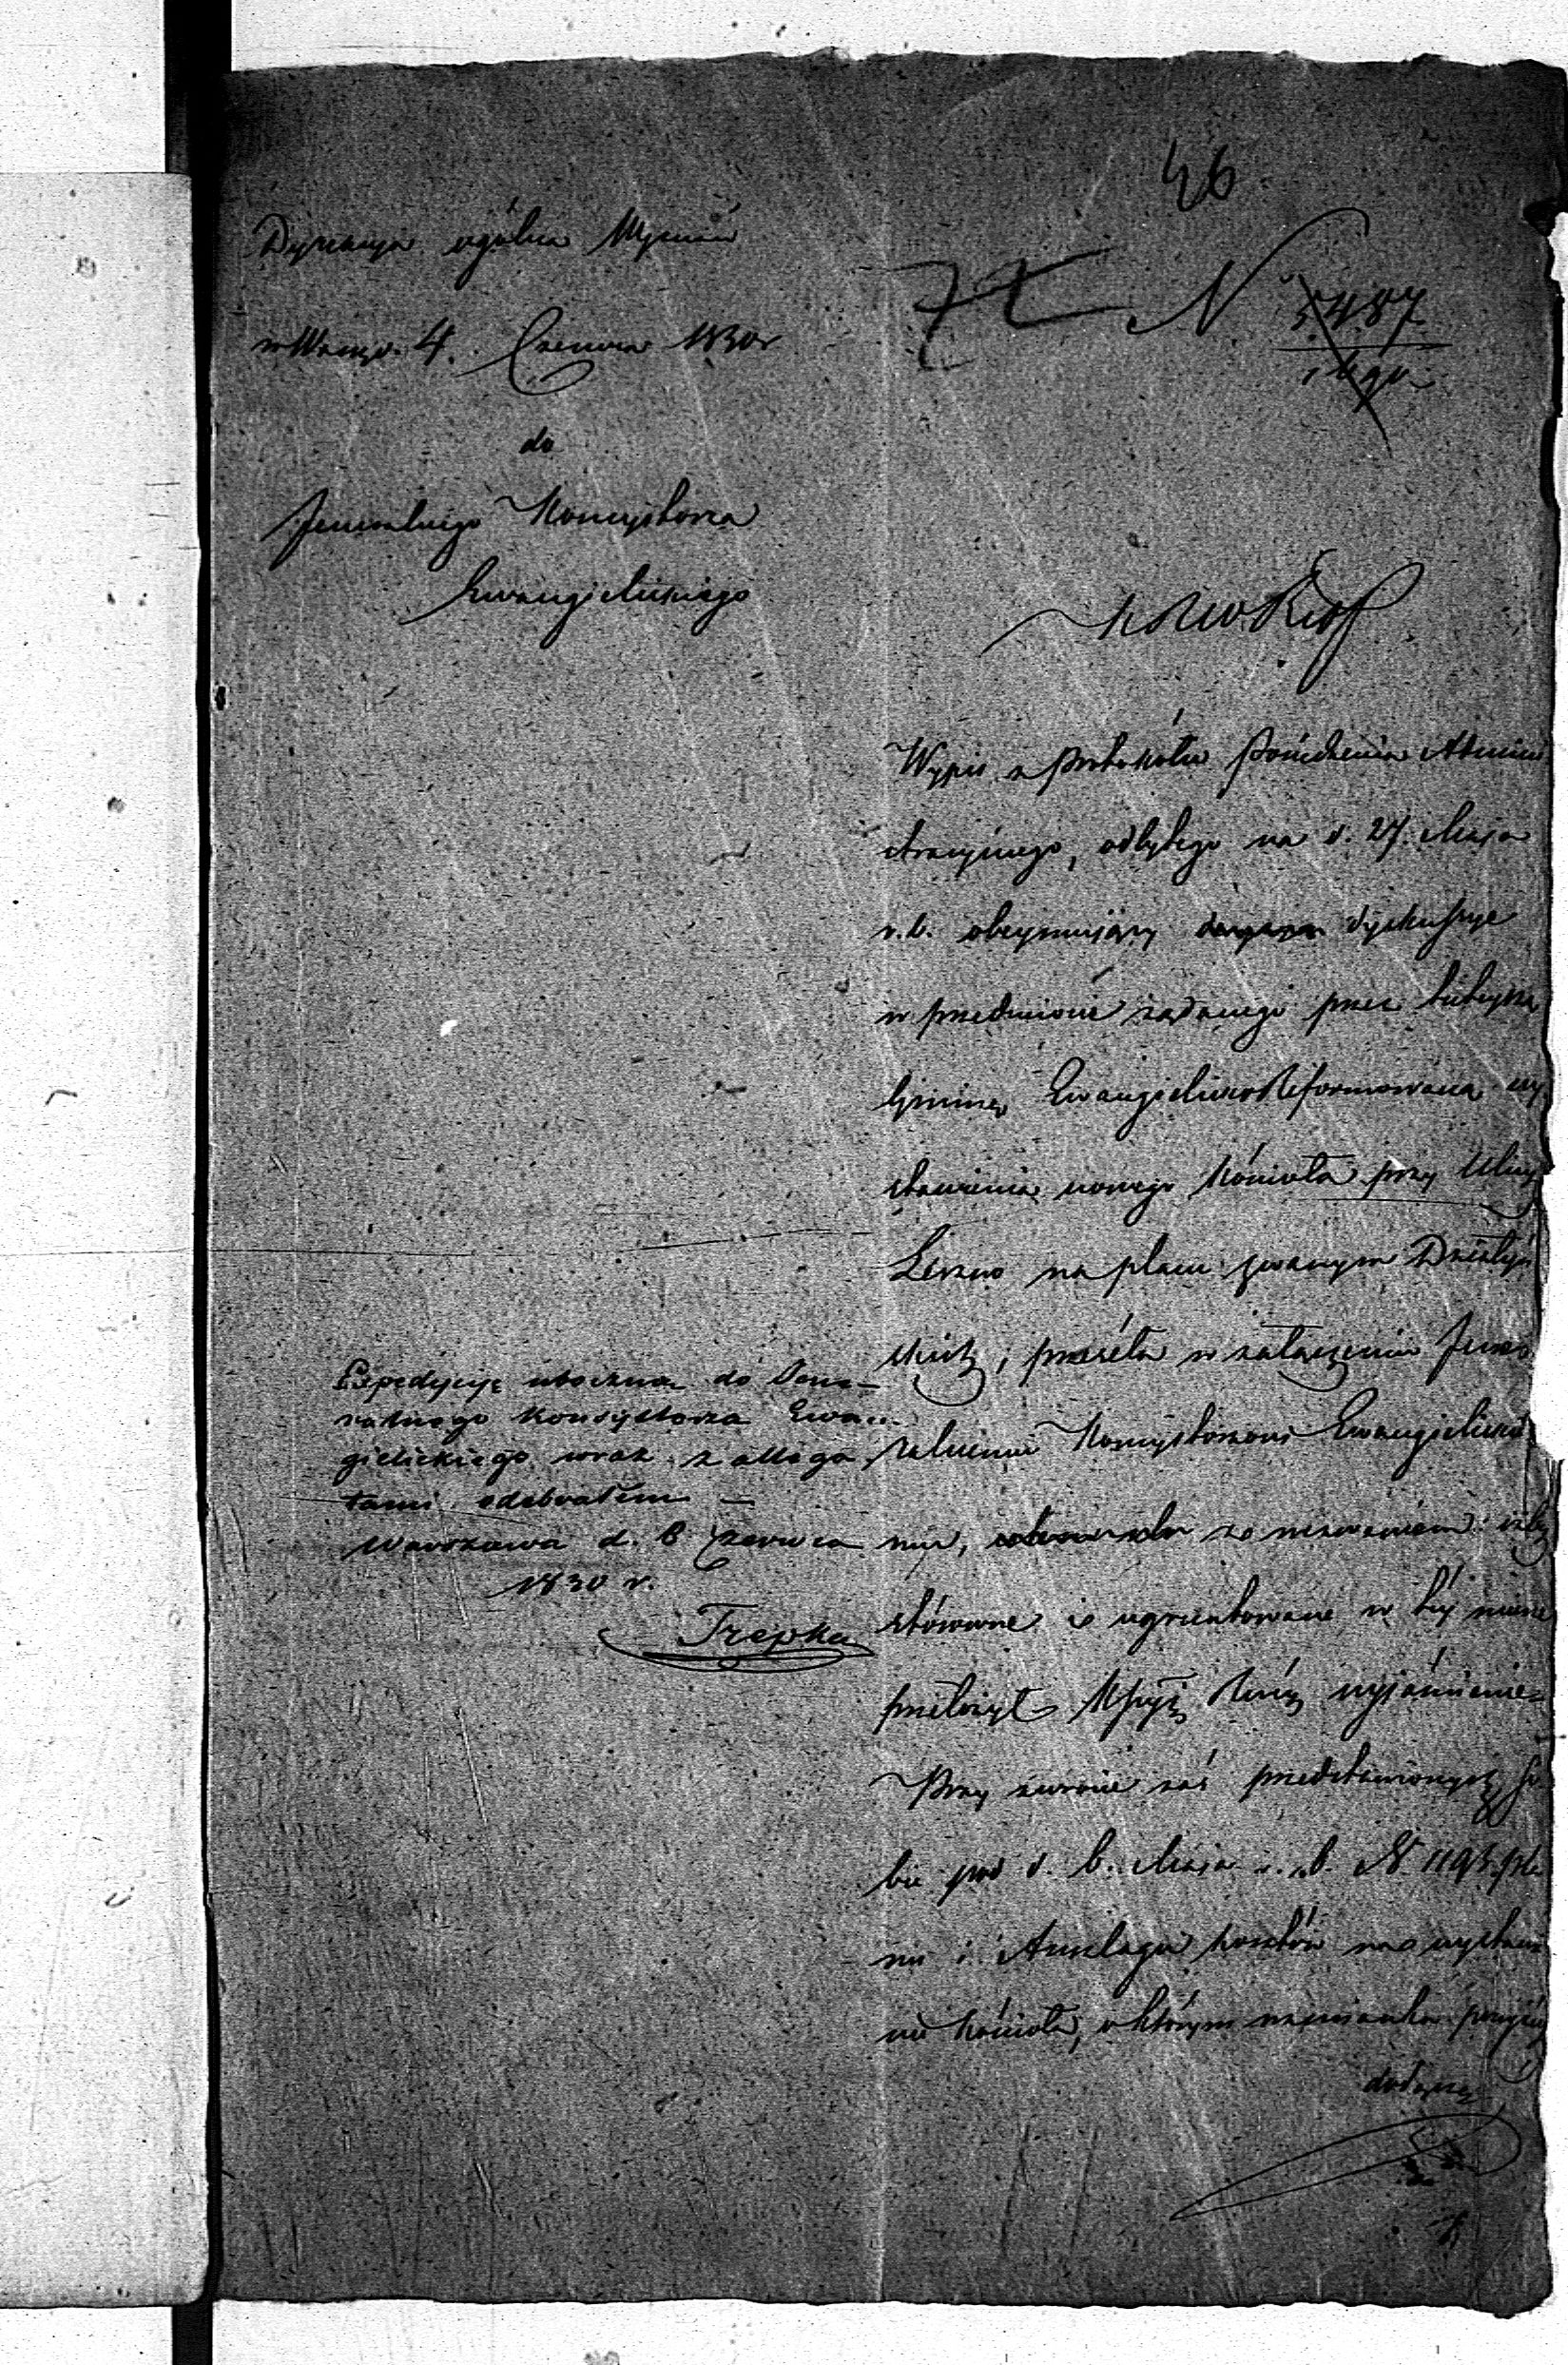 46
Dyrekcya ogólna Wyznań
N 5487
w Warsza. 4. Czerwca 1830 r
do
Jeneralnego Konsystorza
Ewangielickiego
K R W R i O P
Wypis z Protokółu Posiedzenia Admini
stracyinego, odbytego na d. 27. Maja
r. b. obeymujący dyskussye
w przedmiocie żądanego przez tuteyszą
Gminę Ewangielicko Reformowaną wy
stawienia nowego Kościoła przy Ulicy
Leszno na placu zwanym Działyń
skich; przeséła w załączeniu Jene
ralnemu Konsystorzowi Ewangielickie
mu, ze wezwaniem: iżby
stósowne i ugruntowane w téj mierze
przełożył Kssyi Rząd: wyjaśnienie
Przy zwrocie zaś przedstawionych so
bie pod d. 6. Maja r. b. N. 1193. pla
nu i Anszlagu kosztów na wystawie
nie Kościoła, o którym wzmianka powyżéj
dołącza
Expedycyją uboczną do Jene-
ralnego Konsystorza Ewan-
gielickiego wraz z allega
tami odebrałem —
Warszawa d. 8 Czerwca
1830 r.
Trepka